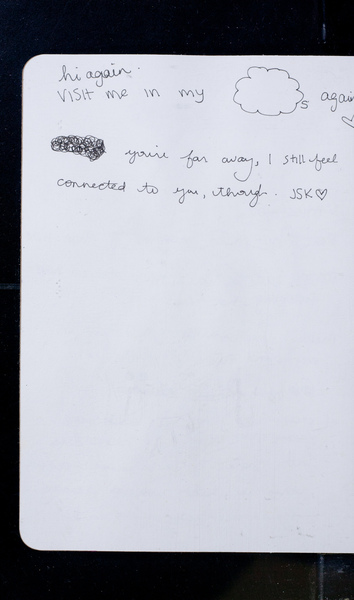 hi again.
VISIT me in my s again
you're far away, I still feel
connected to you, though. JSK♡